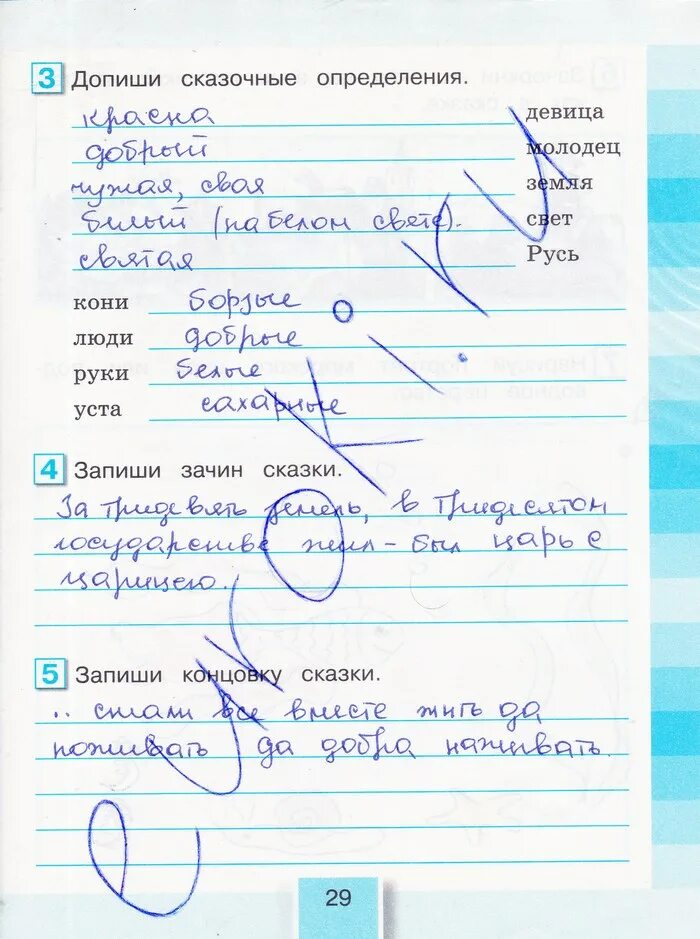 3 Допиши сказочные определения.
красна девица
добрый молодец
чужая, своя земля
белый (на белом свете). свет
святая Русь
кони борзые
люди добрые
руки белые
уста сахарные
4 Запиши зачин сказки.
За тридевять земель, в тридесятом
государстве жил-был царь с
царицею.
5 Запиши концовку сказки.
.. стали все вместе жить да
поживать да добра наживать.
29